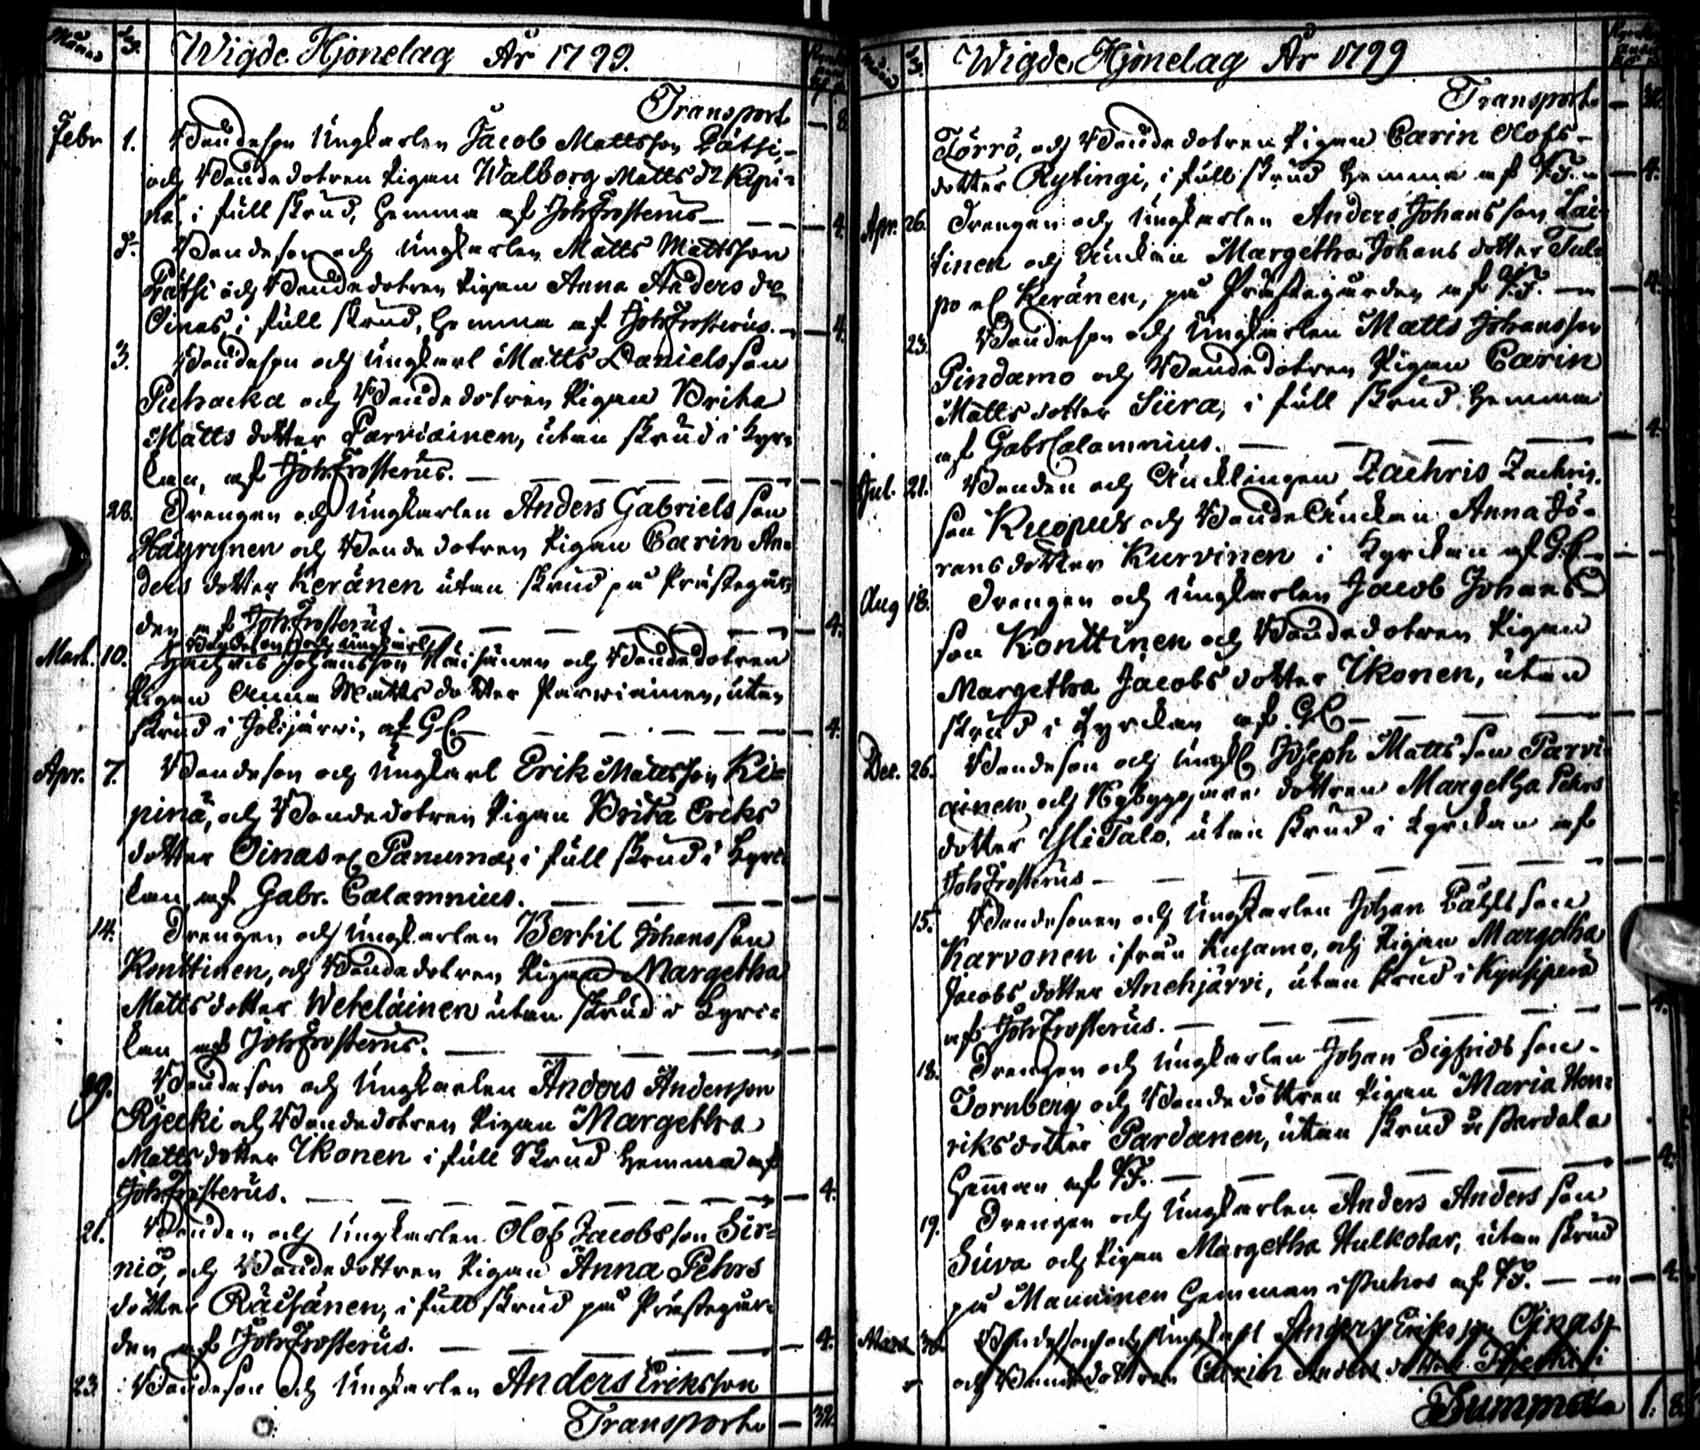 Wigde Hjonelag År 1799.
Transport — 8
Febr 1. Bondeson Ungkarlen Jacob Mattsson Pätsi,
och Bondedotren Pigan Walborg Matts dr Kipi-
nä, i full skrud, hemma af Joh Frosterus — — — 4.
d:o Bondeson och Ungkarlen Matts Mattsson
Pätsi och Bondedotren Pigan Anna Anders dr
Oinas, i full skrud, hemma af Joh Frosterus. — 4.
3. Bondeson och Ungkarl Matts Danielsson
Puhacka och Bondedotren Pigan Brita
Matts dotter Parviainen, utan skrud i Kyr-
kan, af Joh Frosterus. — — — —
28. Drengen och Ungkarlen Anders Gabriels son
Häyrynen och Bonde dotren Pigan Carin An-
ders dotter Keränen utan skrud på Prästegår-
den af Joh Frosterus — — — 4.
Bondeson och ungkarl
Mart. 10. Zachris Johansson Räisänen och Bondedotren
Pigan Anna Matts dotter Parwiainen, utan
skrud i Jokijärwi, af GC. — — — 4.
Apr. 7. Bondeson och Ungkarl Erik Mattsson Ki-
pinä, och Bondedotren Pigan Brita Eriks
dotter Oinas el Panuma, i full skrud i Kyr-
kan, af Gabr. Calamnius. — — —
14. Drengen och Ungkarlen Bertil Johansson
Konttinen, och Bondedotren Pigan Margetha
Matts dotter Weteläinen utan skrud i Kyr-
kan af Joh Frosterus. — — —
Bondeson och Ungkarlen Anders Andersson
Rjecki och Bondedotren Pigan Margetha
Matts dotter Ikonen i full skrud hemma af
Joh Frosterus. — — — 4.
21. Bonden och Ungkarlen Olof Jacobsson Sir-
niö, och Bondedottren Pigan Anna Pehrs
dotter Räisänen, i full skrud på Prästegår-
den af Joh Frosterus. — — — 4.
23. Bondeson och Ungkarlen Anders Eriksson
Transport — 32.
Wigde Hjonelag År 1799
Transport — 32.
Törrö, och Bondedotren Pigan Carin Olofs-
dotter Rytingi, i full skrud hemma af J.F. — 4.
Apr. 26. Drengen och Ungkarlen Anders Johansson Lai-
tinen och Änckan Margetha Johans dotter Tul-
po el Keränen, på Prästegården af J.F. — 4.
23. Bondeson och Ungkarlen Matts Johansson
Pindamo och Bondedotren Pigan Carin
Matts dotter Siira, i full skrud hemma
af Gabr Calamnius. — — — 4.
Jul. 21. Bonden och Äncklingen Zachris Zachris-
son Kuopus och BondeÄnckan Anna Jö-
rans dotter Kurvinen i Kyrckan af G.C. —
Aug 18. Drengen och Ungkarlen Jacob Johans
son Konttinen och Bondedotren Pigan
Margetha Jacobs dotter Ikonen, utan
skrud i Kyrckan af GC — — —
Dec. 26. Bondeson och Ungk Joseph Matts son Parvi-
ainen, och Nybyggare dottren Margetha Pehrs
dotter YliTalo, utan skrud i Kyrckan af
Joh Frosterus — — —
15. Bondesonen och Ungkarlen Johan Påhlsson
Karvonen ifrån Kusamo, och Pigan Margetha
Jacobs dotter Anehjärvi, utan skrud i Kynsiperä
af Joh Frosterus. — — — 4.
18. Drengen och Ungkarlen Johan Sigfrids son
Tornberg och Bondedottren Pigan Maria Hen-
riksdotter Pardanen, utan skrud
Heman af J.F. — — — 4.
19. Drengen och Ungkarlen Anders Anders son
Suva och Pigan Margetha Hulkotar, utan skrud
på Manninen Hemman i Puhos af J.F. — — 4.
Mars Bondeson och Ungkarl Anders Erikson Oinas
och Bondedottren Carin Anders dotter
Summa 1. 8